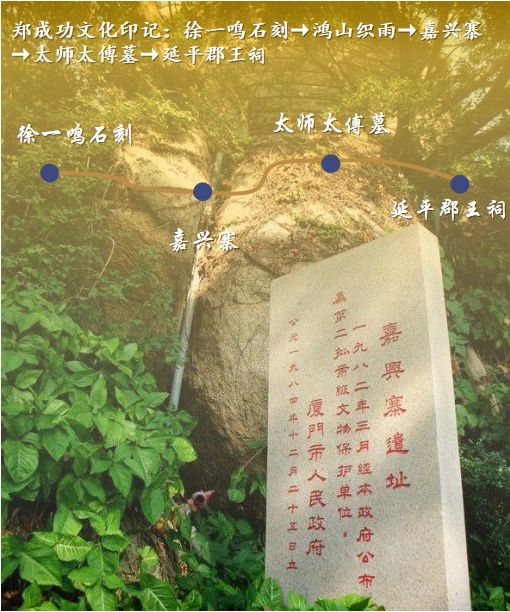 郑成功文化印记：徐一鸣石刻→鸿山织雨→嘉兴寨
→太师太傅墓→延平郡王祠
徐一鸣石刻
太师太傅墓
延平郡王祠
嘉兴寨
嘉興寨遺址
一九八二年三月經本政府公布
為第二批市級文物保护单位。
厦門市人民政府
公元一九八四年十二月二十五日立